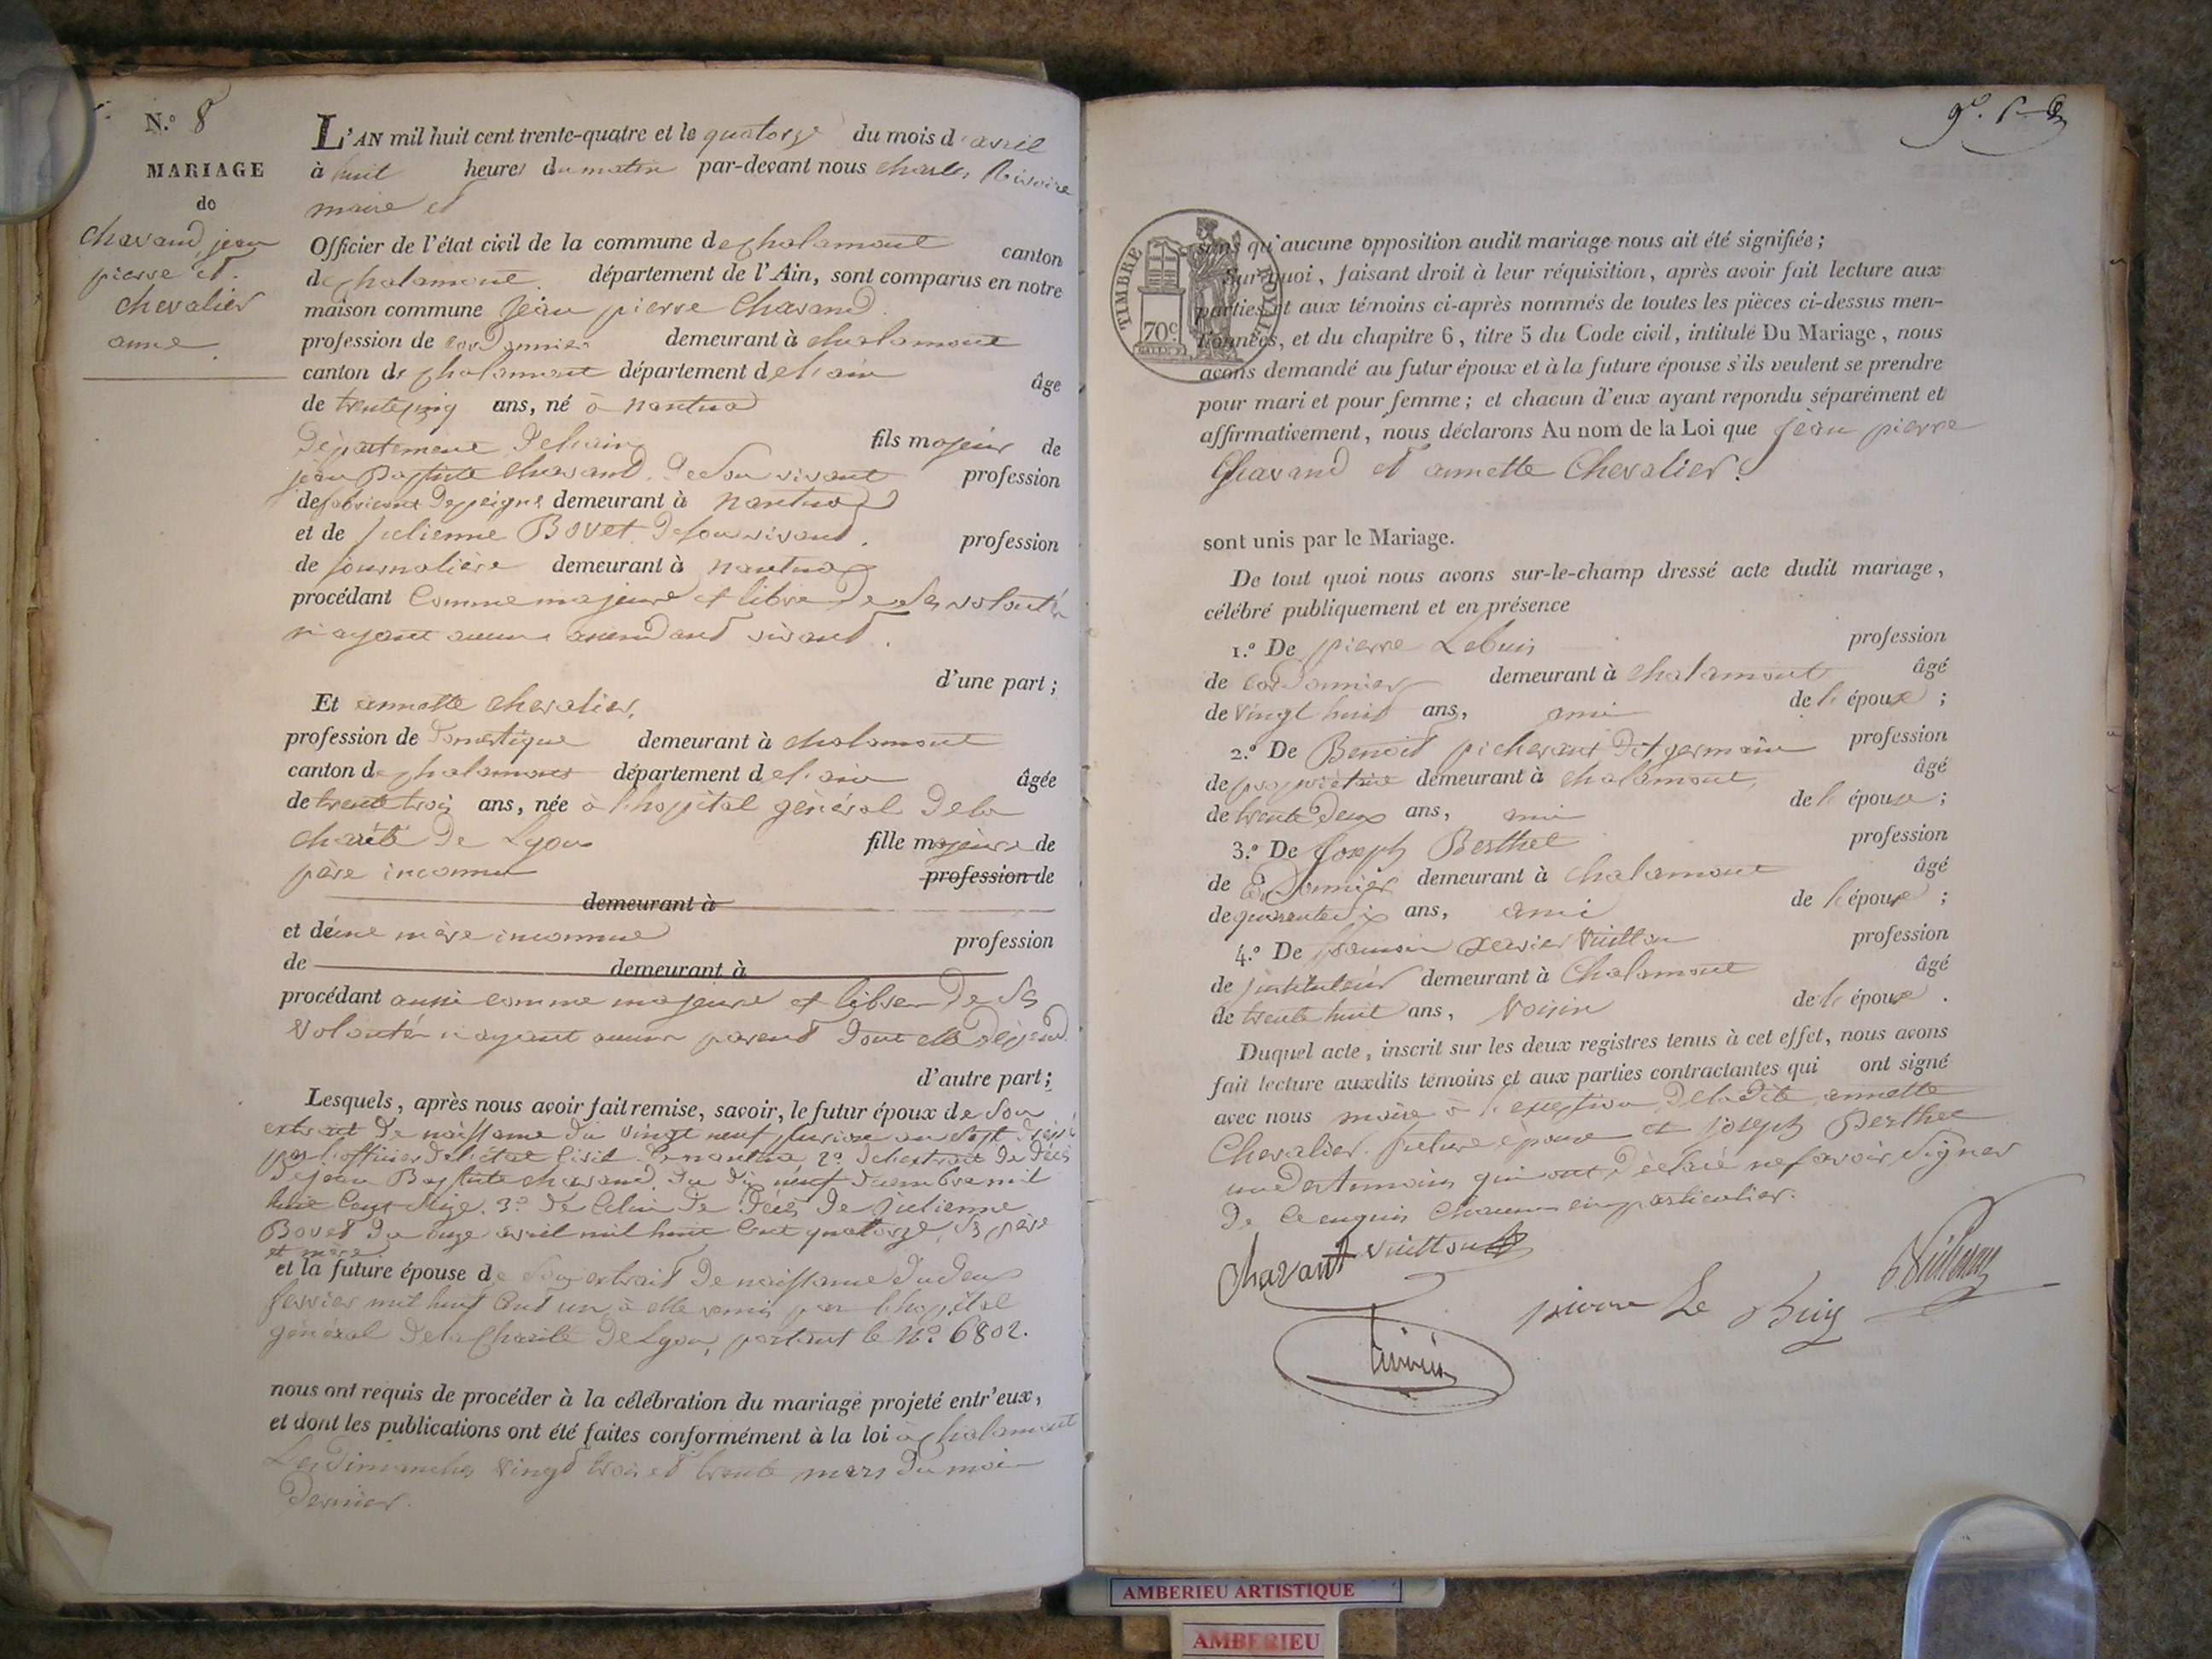 N.º 8
MARIAGE
de
Chavand jean
pierre et
chevalier
anne
L'AN mil huit cent trente-quatre et le quatorze du mois d'avril
à huit heures du matin par-devant nous charles
maire et
Officier de l'état civil de la commune de chalamont canton
de chalamont département de l'Ain, sont comparus en notre
maison commune Jean pierre Chavand
profession de cordonnier demeurant à chalamont
canton de chalamont département de l'ain âgé
de trente cinq ans, né à nantua
Département de l'ain fils majeur de
jean Baptiste chavand de son vivant profession
de fabricant de peignes demeurant à nantua
et de julienne Bovet de son vivant profession
de journalière demeurant à nantua
procédant Comme majeur et libre de ses volontés
n'ayant aucuns ascendans vivant.
d'une part ;
Et annette chevalier,
profession de domestique demeurant à chalamont
canton de chalamont département de l'ain âgée
de trente trois ans, née à l'hopital général de la
charité de Lyon fille majeure de
père inconnu profession de
demeurant à
et de une mère inconnue profession
de demeurant à
procédant aussi comme majeure et libre de ses
volontés n'ayant aucun parent dont elle dépend
d'autre part ;
Lesquels, après nous avoir fait remise, savoir, le futur époux de son
extrait de naissance du vingt neuf pluviose an sept
par l'officier de l'état civil de nantua 2º de l'extrait de décès
de jean Baptiste chavand du dix neuf décembre mil
huit cent 3º de celui de décès de julienne
Bovet du onze avril mil huit cent quatorze, ses père
et mère
et la future épouse de son extrait de naissance du deux
fevrier mil huit cent un à elle remis par l'hopital
général de la Charité de Lyon, portant le Nº 6802.
nous ont requis de procéder à la célébration du mariage projeté entr'eux,
et dont les publications ont été faites conformément à la loi à chalamont
Les dimanches vingt trois et trente mars du mois
dernier.
TIMBRE ROYAL
70c
sans qu'aucune opposition audit mariage nous ait été signifiée ;
Sur quoi, faisant droit à leur réquisition, après avoir fait lecture aux
parties et aux témoins ci-après nommés de toutes les pièces ci-dessus men-
tionnées, et du chapitre 6, titre 5 du Code civil, intitulé Du Mariage, nous
avons demandé au futur époux et à la future épouse s'ils veulent se prendre
pour mari et pour femme ; et chacun d'eux ayant répondu séparément et
affirmativement, nous déclarons Au nom de la Loi que jean pierre
Chavand et annette Chevalier
sont unis par le Mariage.
De tout quoi nous avons sur-le-champ dressé acte dudit mariage,
célébré publiquement et en présence
1.º De pierre Lebuis profession
de cordonnier demeurant à chalamont âgé
de vingt huit ans, ami de l'époux ;
2.º De Benoit picherant dit germain profession
de propriétaire demeurant à chalamont âgé
de trente deux ans, ami de l'épouse ;
3.º De Joseph Berthet profession
de Cordonnier demeurant à chalamont âgé
de quarante ans, ami de l'époux ;
4.º De xavier Vuitton profession
de instituteur demeurant à Chalamont âgé
de trente huit ans, voisin de l'époux .
Duquel acte, inscrit sur les deux registres tenus à cet effet, nous avons
fait lecture auxdits témoins et aux parties contractantes qui ont signé
avec nous maire à l'exeption de la dite annette
Chevalier future épouse et joseph Berthet
un des temoins qui ont déclaré ne savoir signer
de ce enquis chacun en particulier.
Chavant Vuitton
pierre Le Buis
AMBERIEU ARTISTIQUE
AMBERIEU